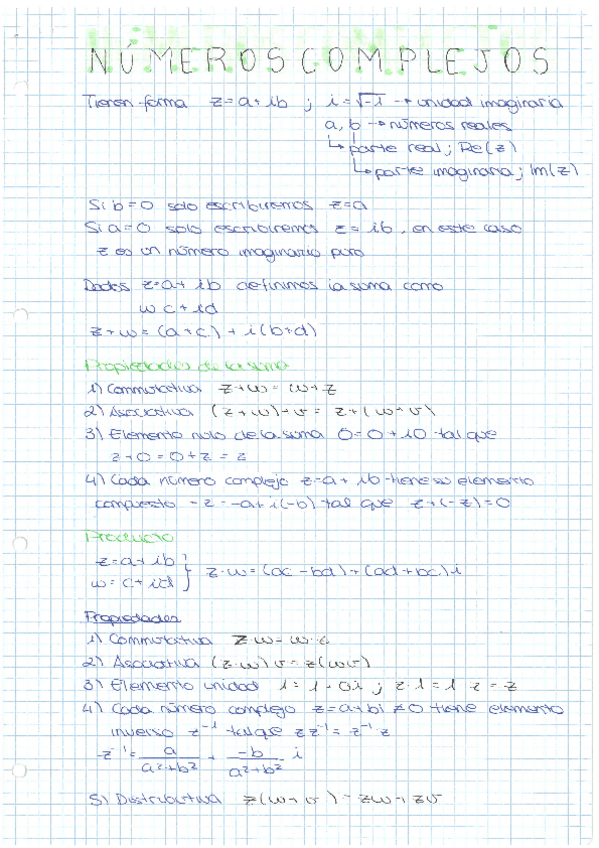 NÚMEROS COMPLEJOS
Tienen forma z=a+ib ; i=√-1 → unidad imaginaria
a, b → números reales
↳ parte real; Re(z)
↳ parte imaginaria; Im(z)
Si b=0 solo escribiremos z=a
Si a=0 solo escribiremos z=ib, en este caso
z es un número imaginario puro
Dados z=a+ib definimos la suma como
w c+id
z+w=(a+c)+i(b+d)
Propiedades de la suma
1) Commutativa z+w=w+z
2) Asociativa (z+w)+v=z+(w+v)
3) Elemento nulo de la suma 0=0+i0 tal que
z+0=0+z=z
4) Cada número complejo z=a+ib tiene su elemento
compuesto -z=-a+i(-b) tal que z+(-z)=0
Producto
z=a+ib
w=c+id } z·w=(ac-bd)+(ad+bc)i
Propiedades
1) Commutativa z·w=w·z
2) Asociativa (z·w)v=z(wv)
3) Elemento unidad 1=1+0i ; z·1=1·z=z
4) Cada número complejo z=a+bi≠0 tiene elemento
inverso z⁻¹ tal que zz⁻¹=z⁻¹z
z⁻¹= a/(a²+b²) + -b/(a²+b²) i
5) Distributiva z(w+v)=zw+zv